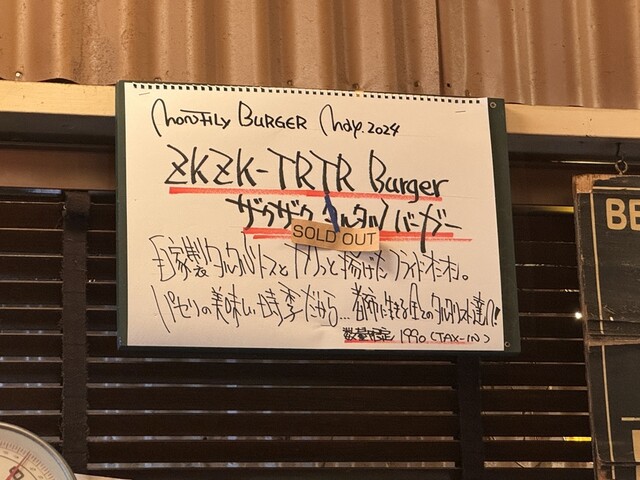 Monthly Burger May. 2024
ZKZK-TRTR Burger
ザクザクタルタルバーガー
SOLD OUT
自家製タルタルソースとサクッと揚げたフライドオニオン。
パセリの美味しい時季だから… 都市に生きる全てのタルタリスト達へ!
数量限定 1990 (TAX-IN)
BE